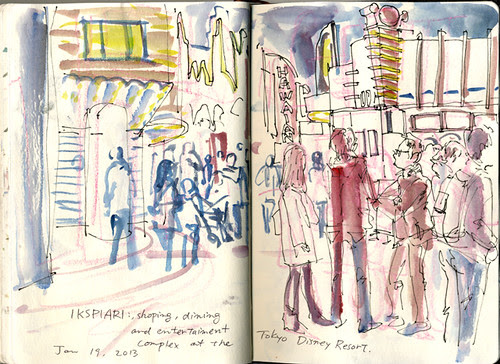 HAWAII
IKSPIARI:, shoping, dinning
and entertaiment
complex at the
Jan 19, 2013
Tokyo Disney Resort.